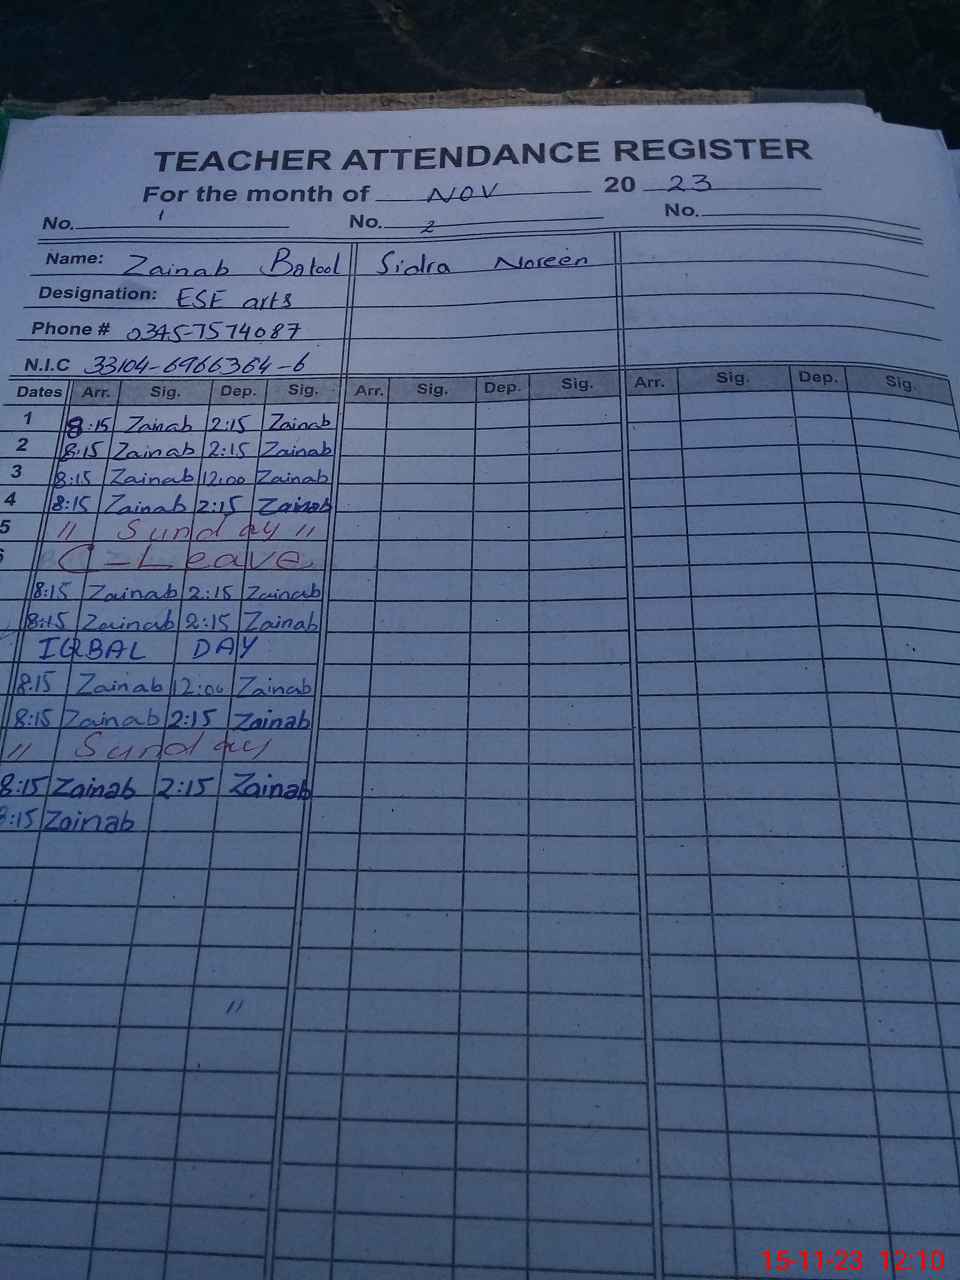 TEACHER ATTENDANCE REGISTER
For the month of NOV 20 23
No. 1 No. 2 No.
Name: Zainab Batool Sidra Noreen
Designation: ESE arts
Phone # 0345-7574087
N.I.C 33104-6966364-6
Dates Arr. Sig. Dep. Sig. Arr. Sig. Dep. Sig. Arr. Sig. Dep. Sig.
1 8:15 Zainab 2:15 Zainab
2 8:15 Zainab 2:15 Zainab
3 8:15 Zainab 12:00 Zainab
4 8:15 Zainab 2:15 Zainab
5 " Sunday "
6 C-Leave
8:15 Zainab 2:15 Zainab
8:15 Zainab 2:15 Zainab
IQBAL DAY
8:15 Zainab 12:00 Zainab
8:15 Zainab 2:15 Zainab
" Sunday
8:15 Zainab 2:15 Zainab
8:15 Zainab
"
15-11-23 12:10